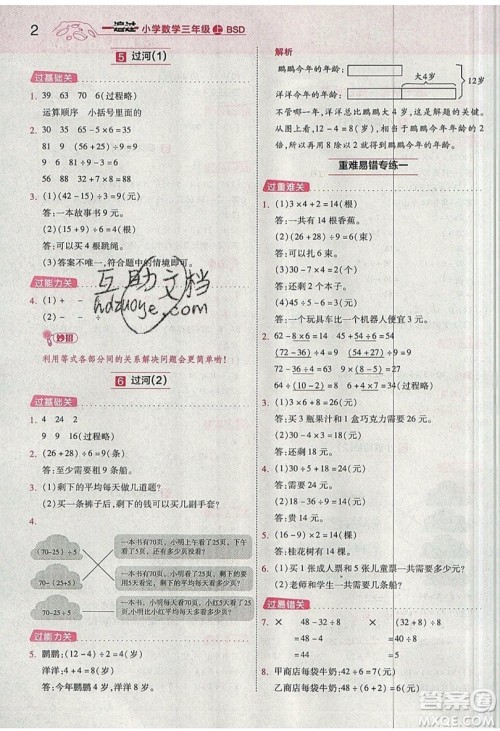 2 一遍过 小学数学三年级 上 BSD
5 过河(1)
过基础关
1. 39 63 70 6(过程略)
运算顺序 小括号里面的
2. 30 35 65-5×6=35
81 9 81÷9÷9=1
3. (1)(66-12)÷6=9(元)
答:一本故事书9元。
(2)(16+20)÷9=4(根)
答:可以买4根跳绳。
(3)答案不唯一,符合题中的情境即可。
过能力关
4. (1)+ -
妙招
利用等式各部分间的关系解决问题会更简单哟!
6 过河(2)
过基础关
1. 4 24 2
9 9 40(过程略)
2. (26+28)÷6=9(条)
答:至少需要租9条船。
3. 剩下的平均每天做几道题?
4. 买一条裤子后,剩下的钱可以买几副手套?
5.
(70-25)÷5
70-(25+5)
70-25÷5
一本书有70页,小明上午看了25页,下午看了5页,还有多少页没看?
一本书有70页,小明看了25页,剩下的要5天看完,平均每天看多少页?
小明5天看70页,小红5天看25页,小明平均每天比小红平均每天多看多少页?
过能力关
6. 鹏鹏:(12-4)÷2=4(岁)
洋洋:4+4=8(岁)
答:今年鹏鹏4岁,洋洋8岁。
解析
鹏鹏今年的年龄:
大4岁
12岁
洋洋今年的年龄:
不管哪一年,洋洋总比鹏鹏大4岁,这是解题的关键。
从图上看,12-4=8(岁),相当于鹏鹏今年年龄的
2倍,所以8÷2=4(岁)就是鹏鹏今年的年龄。
重难易错专练一
过重难关
1. (1)3×4+2=14(根)
答:一共有14根香蕉。
(2)(20-2)÷2=9(束)
答:还可以扎9束。
2. (36-9)÷3=9(元)
答:一个玩具车比一个机器人便宜9元。
3. (72-36)÷9=4 6×(54÷6)=54
(28-19)×8=72 24÷(32÷4)=3
4. (1)3×6+8=26(元)
答:买3瓶果汁和1盒巧克力需要26元。
(2)30-4×6=6(元)
答:还剩6元。
(3)(30-6)÷8=3(盒)
答:可以买3盒。
(4)50-(8+18)=24(元)
答:还剩24元。
5. (15-6)×2=18(棵)
答:桂花树有18棵。
6. (1)答:买10张成人票和5张儿童票一共需要多少元?
(2)答:老师和学生一共需要租几条船?
过易错关
7. × 48-32÷8 × 48÷(2×3)
=48-4 =48÷6
=44 =8
8. 甲商店每袋牛奶:40÷5=8(元)
乙商店每袋牛奶:42÷6=7(元)
互助文档
hdzuoye.com
答案圈
MXQE.COM